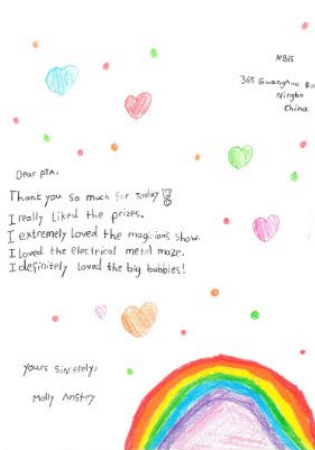 NBIS
365 Guanghua
Ningbo
China
Dear PTA,
Thank you so much for today
I really liked the prizes.
I extremely loved the magicians show.
I loved the electrical metal maze.
I definitely loved the big bubbles!
Yours Sincerely,
Molly Anstey